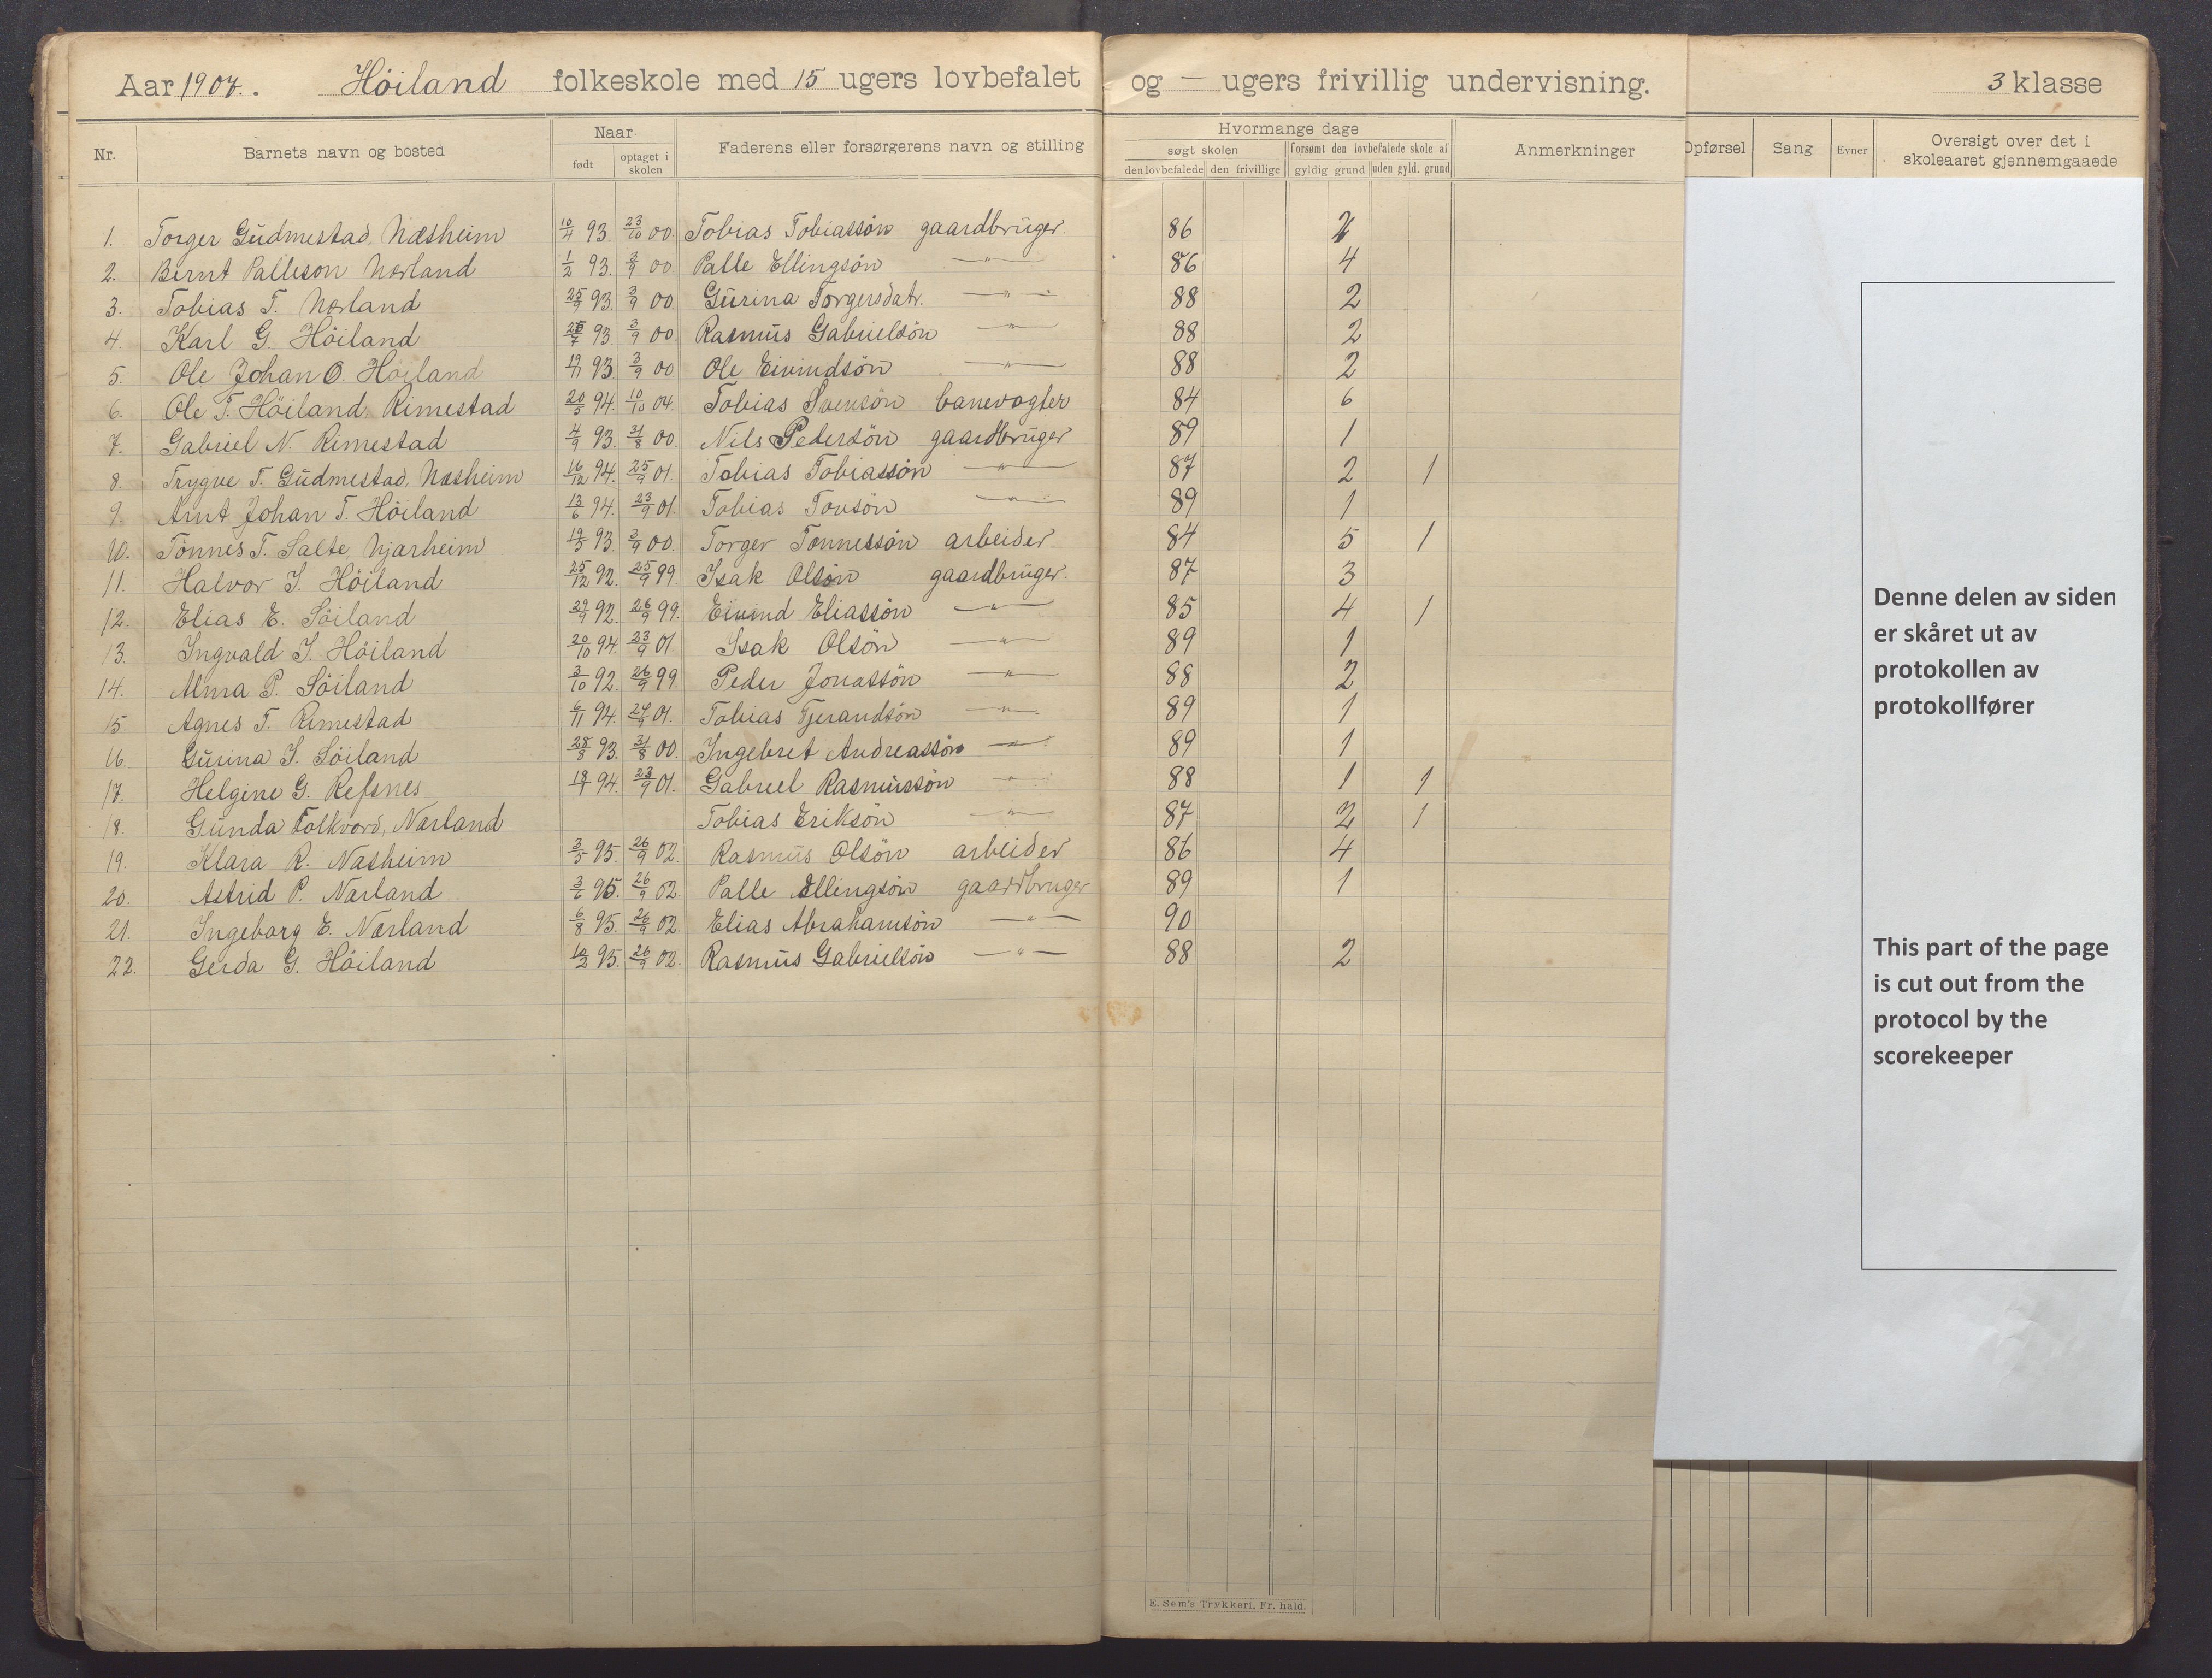 Aar 1904. Höiland folkeskole med 15 ugers lovbefalet og — ugers frivillig undervisning. 3 klasse
Nr. Barnets navn og bosted Naar født optaget i skolen Faderens eller forsørgerens navn og stilling Hvormange dage søgt skolen den lovbefalede den frivillige forsømt den lovbefalede skole af gyldig grund uden gyld. grund Anmerkninger Opførsel Sang Evner Oversigt over det i skoleaaret gjennemgaaede
1. Torger Gudmestad, Næsheim 10/4 93. 23/10 00. Tobias Tobiassön gaardbruger. 86
2. Bernt Palleson Nærland 1/2 93. 3/9 00. Palle Ellingsön —"— 86 4
3. Tobias T. Nærland 25/9 93. 3/9 00. Gurina Torgersdatr. —"— 88 2
4. Karl G. Höiland 93. 3/9 00. Rasmus Gabrielsön —"— 88 2
5. Ole Johan O. Höiland 19/11 93. 3/9 00. Ole Eivindsön —"— 88 2
6. Ole T. Höiland, Rimestad 20/5 94. 10/10 04. Tobias Svensön banevogter 84 6
7. Gabriel N. Rimestad 4/9 93. 31/8 00. Nils Pedersön gaardbruger 89 1
8. Trygve T. Gudmestad, Næsheim 16/12 94. 25/9 01. Tobias Tobiassön —"— 87 2 1
9. Arnt Johan T. Höiland 13/6 94. 23/9 01. Tobias Tonsön —"— 89 1
10. Tönnes T. Salte, Njærheim 93. 3/9 00. Torger Tønnessön arbeider 84 5 1
11. Halvor I. Höiland 25/12 92. 25/9 99. Isak Olsön gaardbruger. 87 3
12. Elias E. Söiland 29/9 92. 26/9 99. Eivind Eliassön —"— 85 4 1
13. Ingvald I. Höiland 20/10 94. 23/9 01. Isak Olsön —"— 89 1
14. Alma P. Söiland 3/10 92. 26/9 99. Peder Jonassön —"— 88 2
15. Agnes T. Rimestad 6/11 94. 24/9 01. Tobias Tjerandsön —"— 89 1
16. Gurina I. Söiland 28/8 93. 31/8 00. Ingebret Andreassön —"— 89 1
17. Helgine G. Refsnes 94. 23/9 01. Gabriel Rasmussön —"— 88 1 1
18. Gunda Folkvord, Nærland Tobias Eriksön —"— 87 2 1
19. Klara R. Næsheim 3/5 95. 26/9 02. Rasmus Olsön arbeider 86 4
20. Astrid P. Nærland 3/6 95. 26/9 02. Palle Ellingsön gaardbruger 89 1
21. Ingeborg E. Nærland 6/8 95. 26/9 02. Elias Abrahamsön —"— 90
22. Gerda G. Höiland 95. 26/9 02. Rasmus Gabrielsön —"— 88 2
E. Sem's Trykkeri, Fr. hald.
Denne delen av siden
er skåret ut av
protokollen av
protokollfører
This part of the page
is cut out from the
protocol by the
scorekeeper